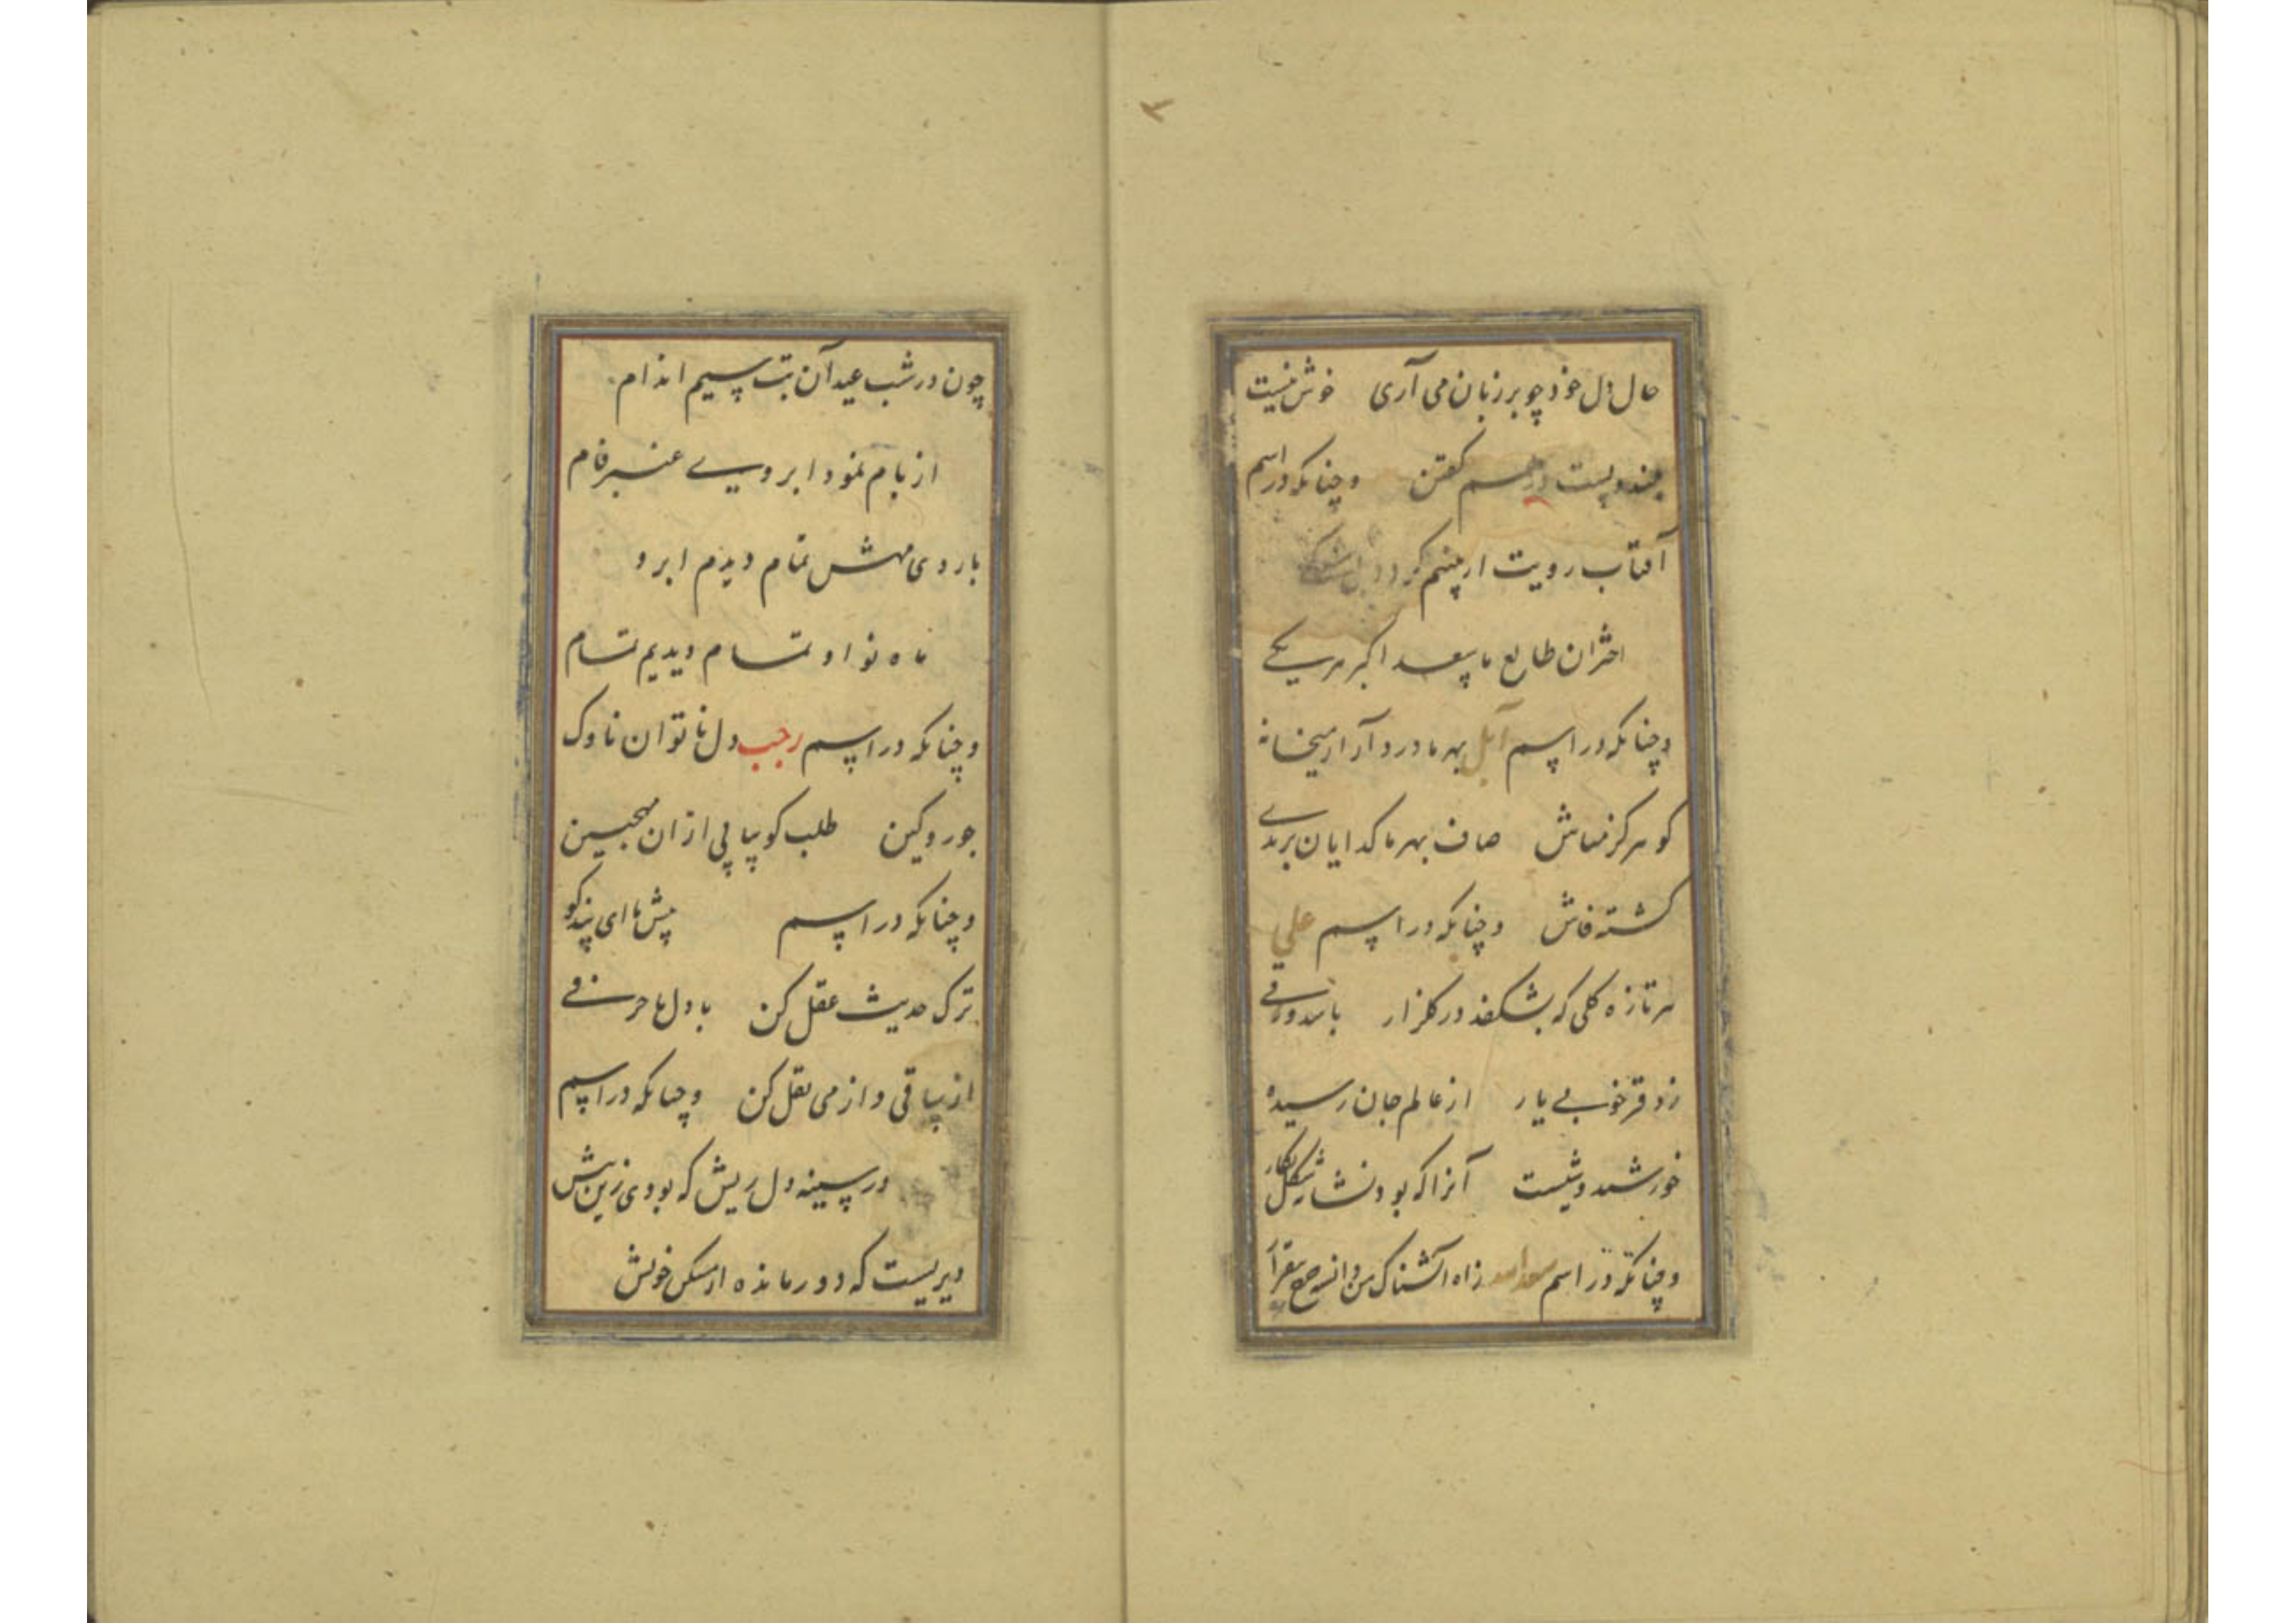 ۲
حال دل خود چو بر زبان می آری خوش نیست
درهم گفتن وچنانکه در اسم
آفتاب رویت ار چشم کرد
اختران طالع ما سعد اکبر هر یکی
وچنانکه در اسم آبل بهر ما درد آرد از میخانه
کو هرگز مباش صاف بهر ما گدایان بر بدی
گشته فاش وچنانکه در اسم علی
هر تازه گلی که بشکفد در گلزار باشد ورقی
ز دفتر خوبی یار از عالم جان رسیده
خورشید وشیست آنرا که بود نشان شکل نگار
وچنانکه در اسم ز آه آتشناک من
چون در شب عید آن بت سیم اندام
از بام نمود ابرویی عنبرفام
با روی مهش تمام دیدم ابرو
ماه نو او تمام دیدیم تمام
وچنانکه در اسم رجب دل ناتوان ناوک
جور وکین طلب کو پیاپی از ان مهجبین
وچنانکه در اسم پیش ما ای پندگو
ترک حدیث عقل کن با دل ما حرفی
از ساقی و از می نقل کن وچنانکه در اسم
در سینه دل ریش که بودی زین پیش
دیریست که دور مانده از مسکن خویش